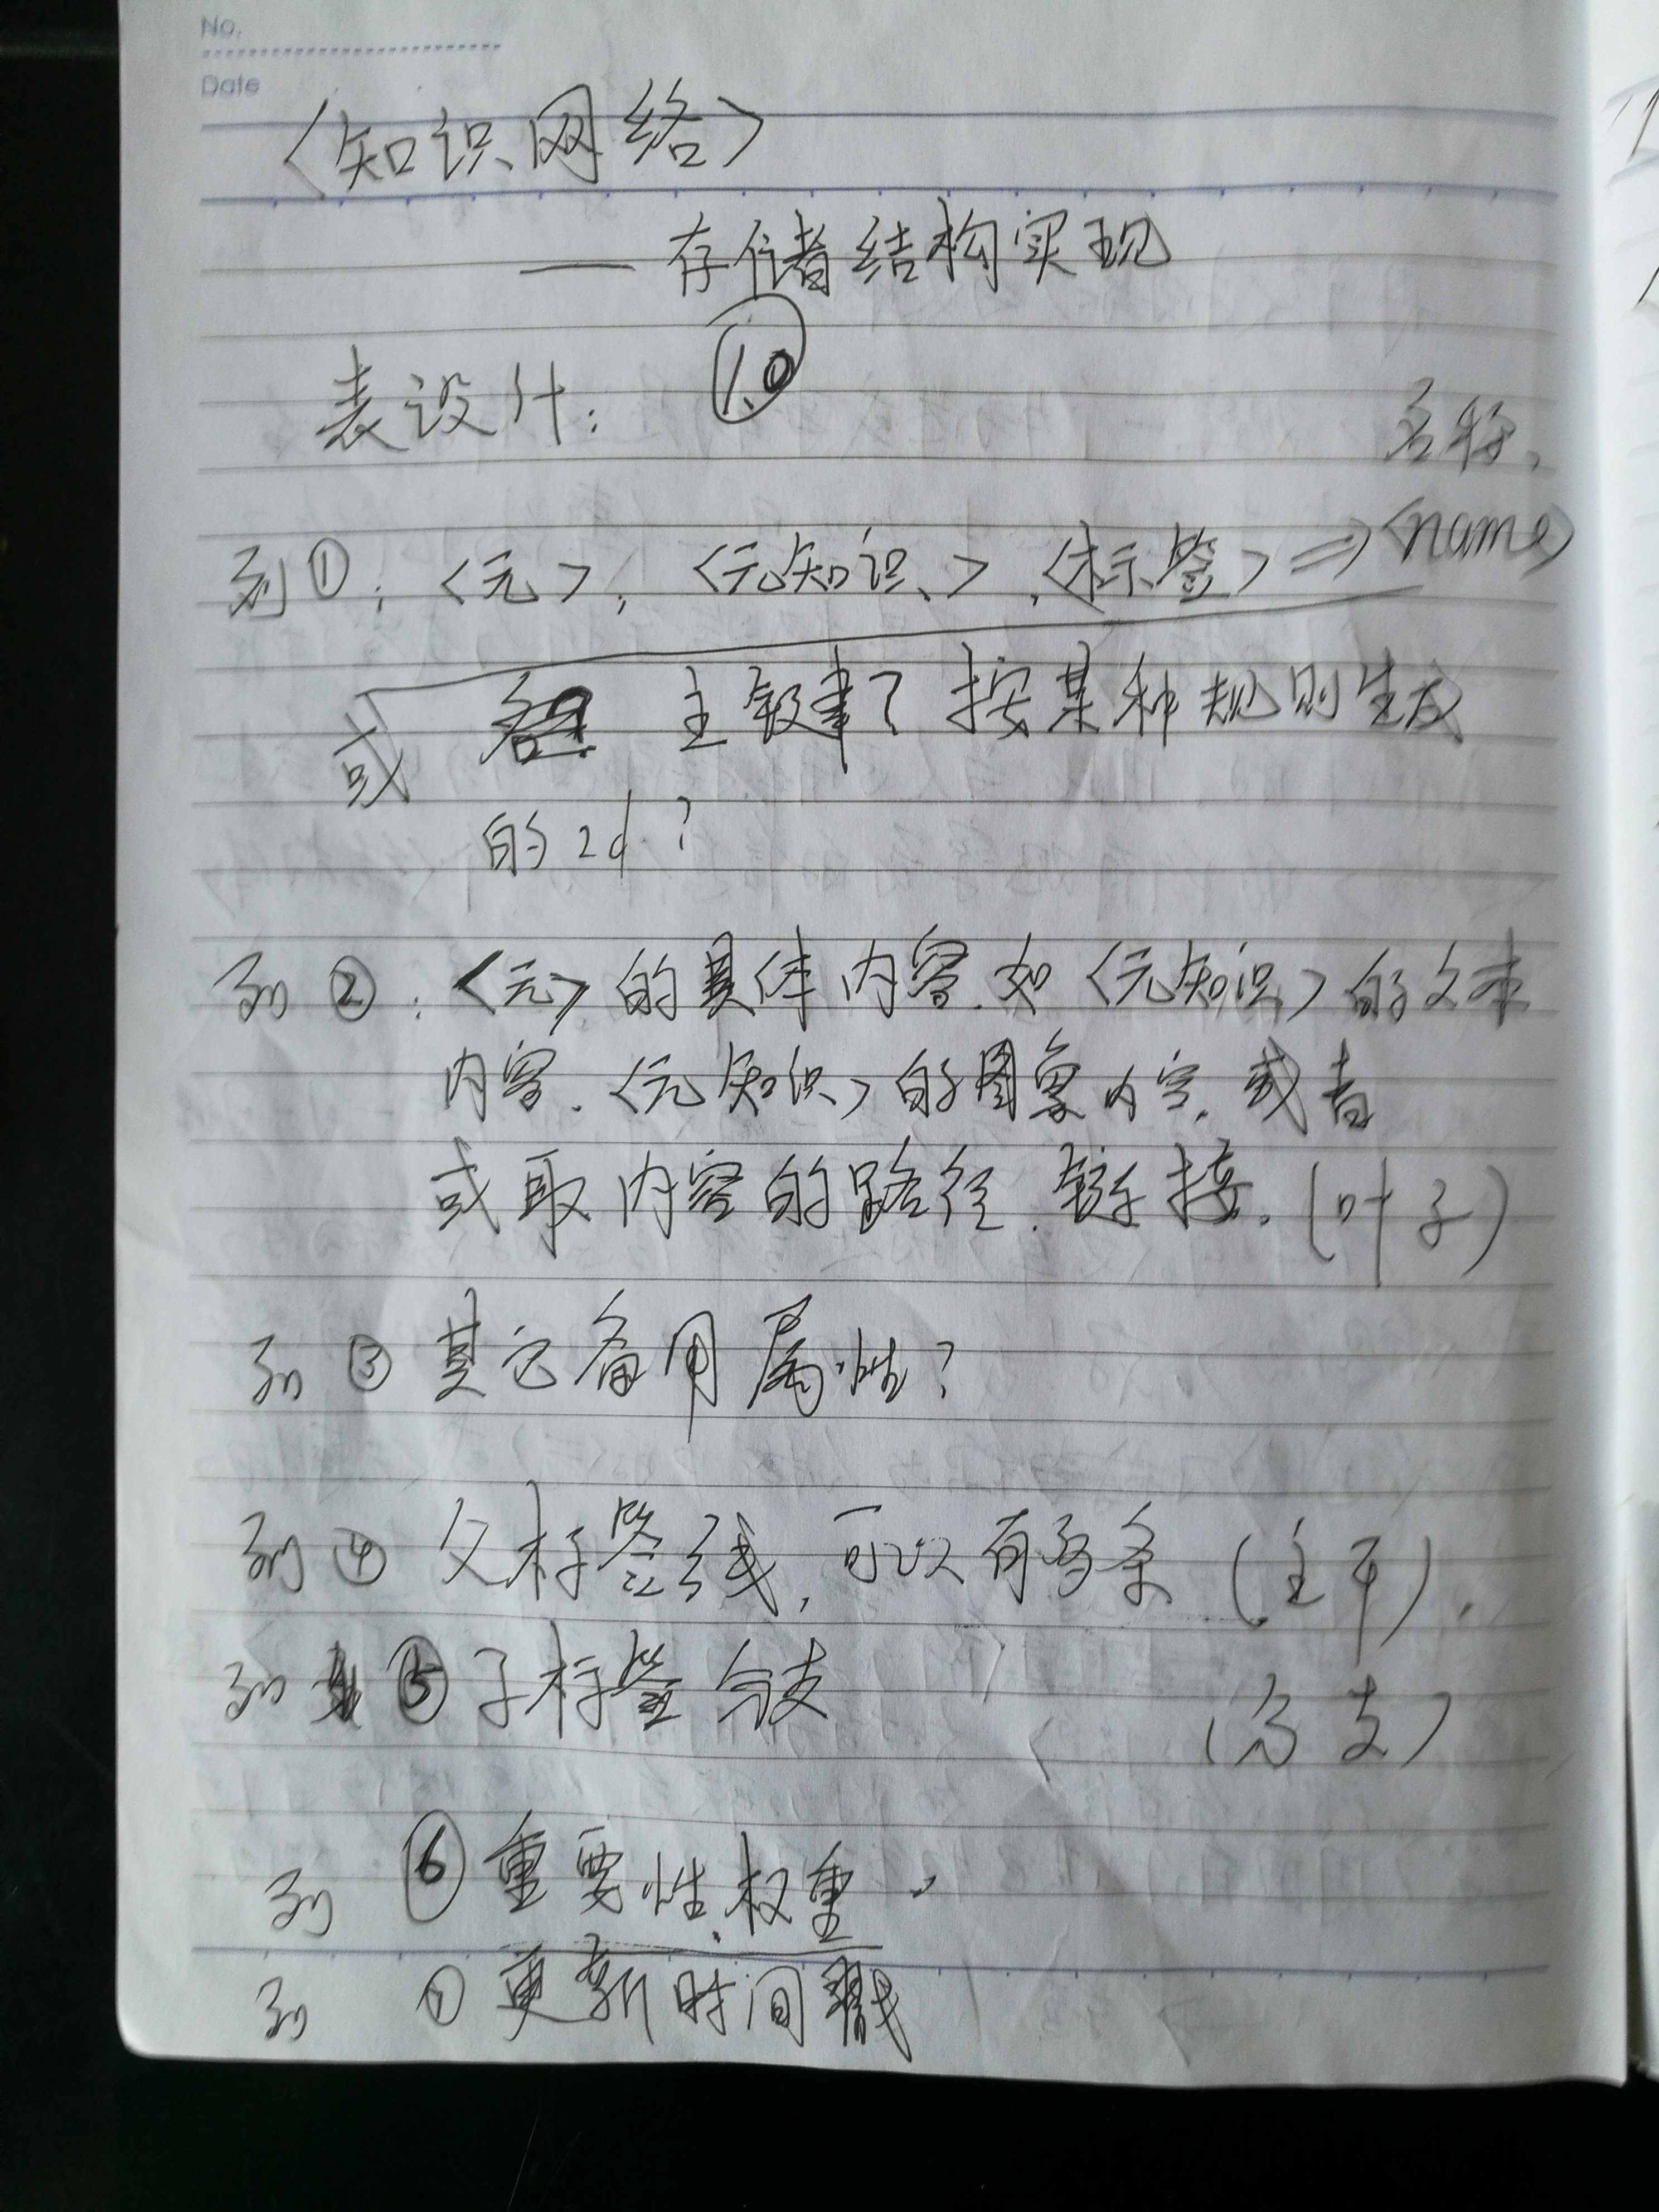 No.
Date
〈知识网络〉
——存储结构实现
表设计: 1.0
名称,
列①: 〈元〉, 〈元知识〉, 〈标签〉⇒〈name〉
或 主键? 按某种规则生成
的id?
列②: 〈元〉的具体内容.如〈元知识〉的文本
内容.〈元知识〉的图象内容,或者
或取内容的路径.链接.(叶子)
列③其它备用属性?
列④父标签线,可以有多条(主干).
列⑤子标签分支 (分支)
列⑥重要性.权重.
列⑦更新时间戳